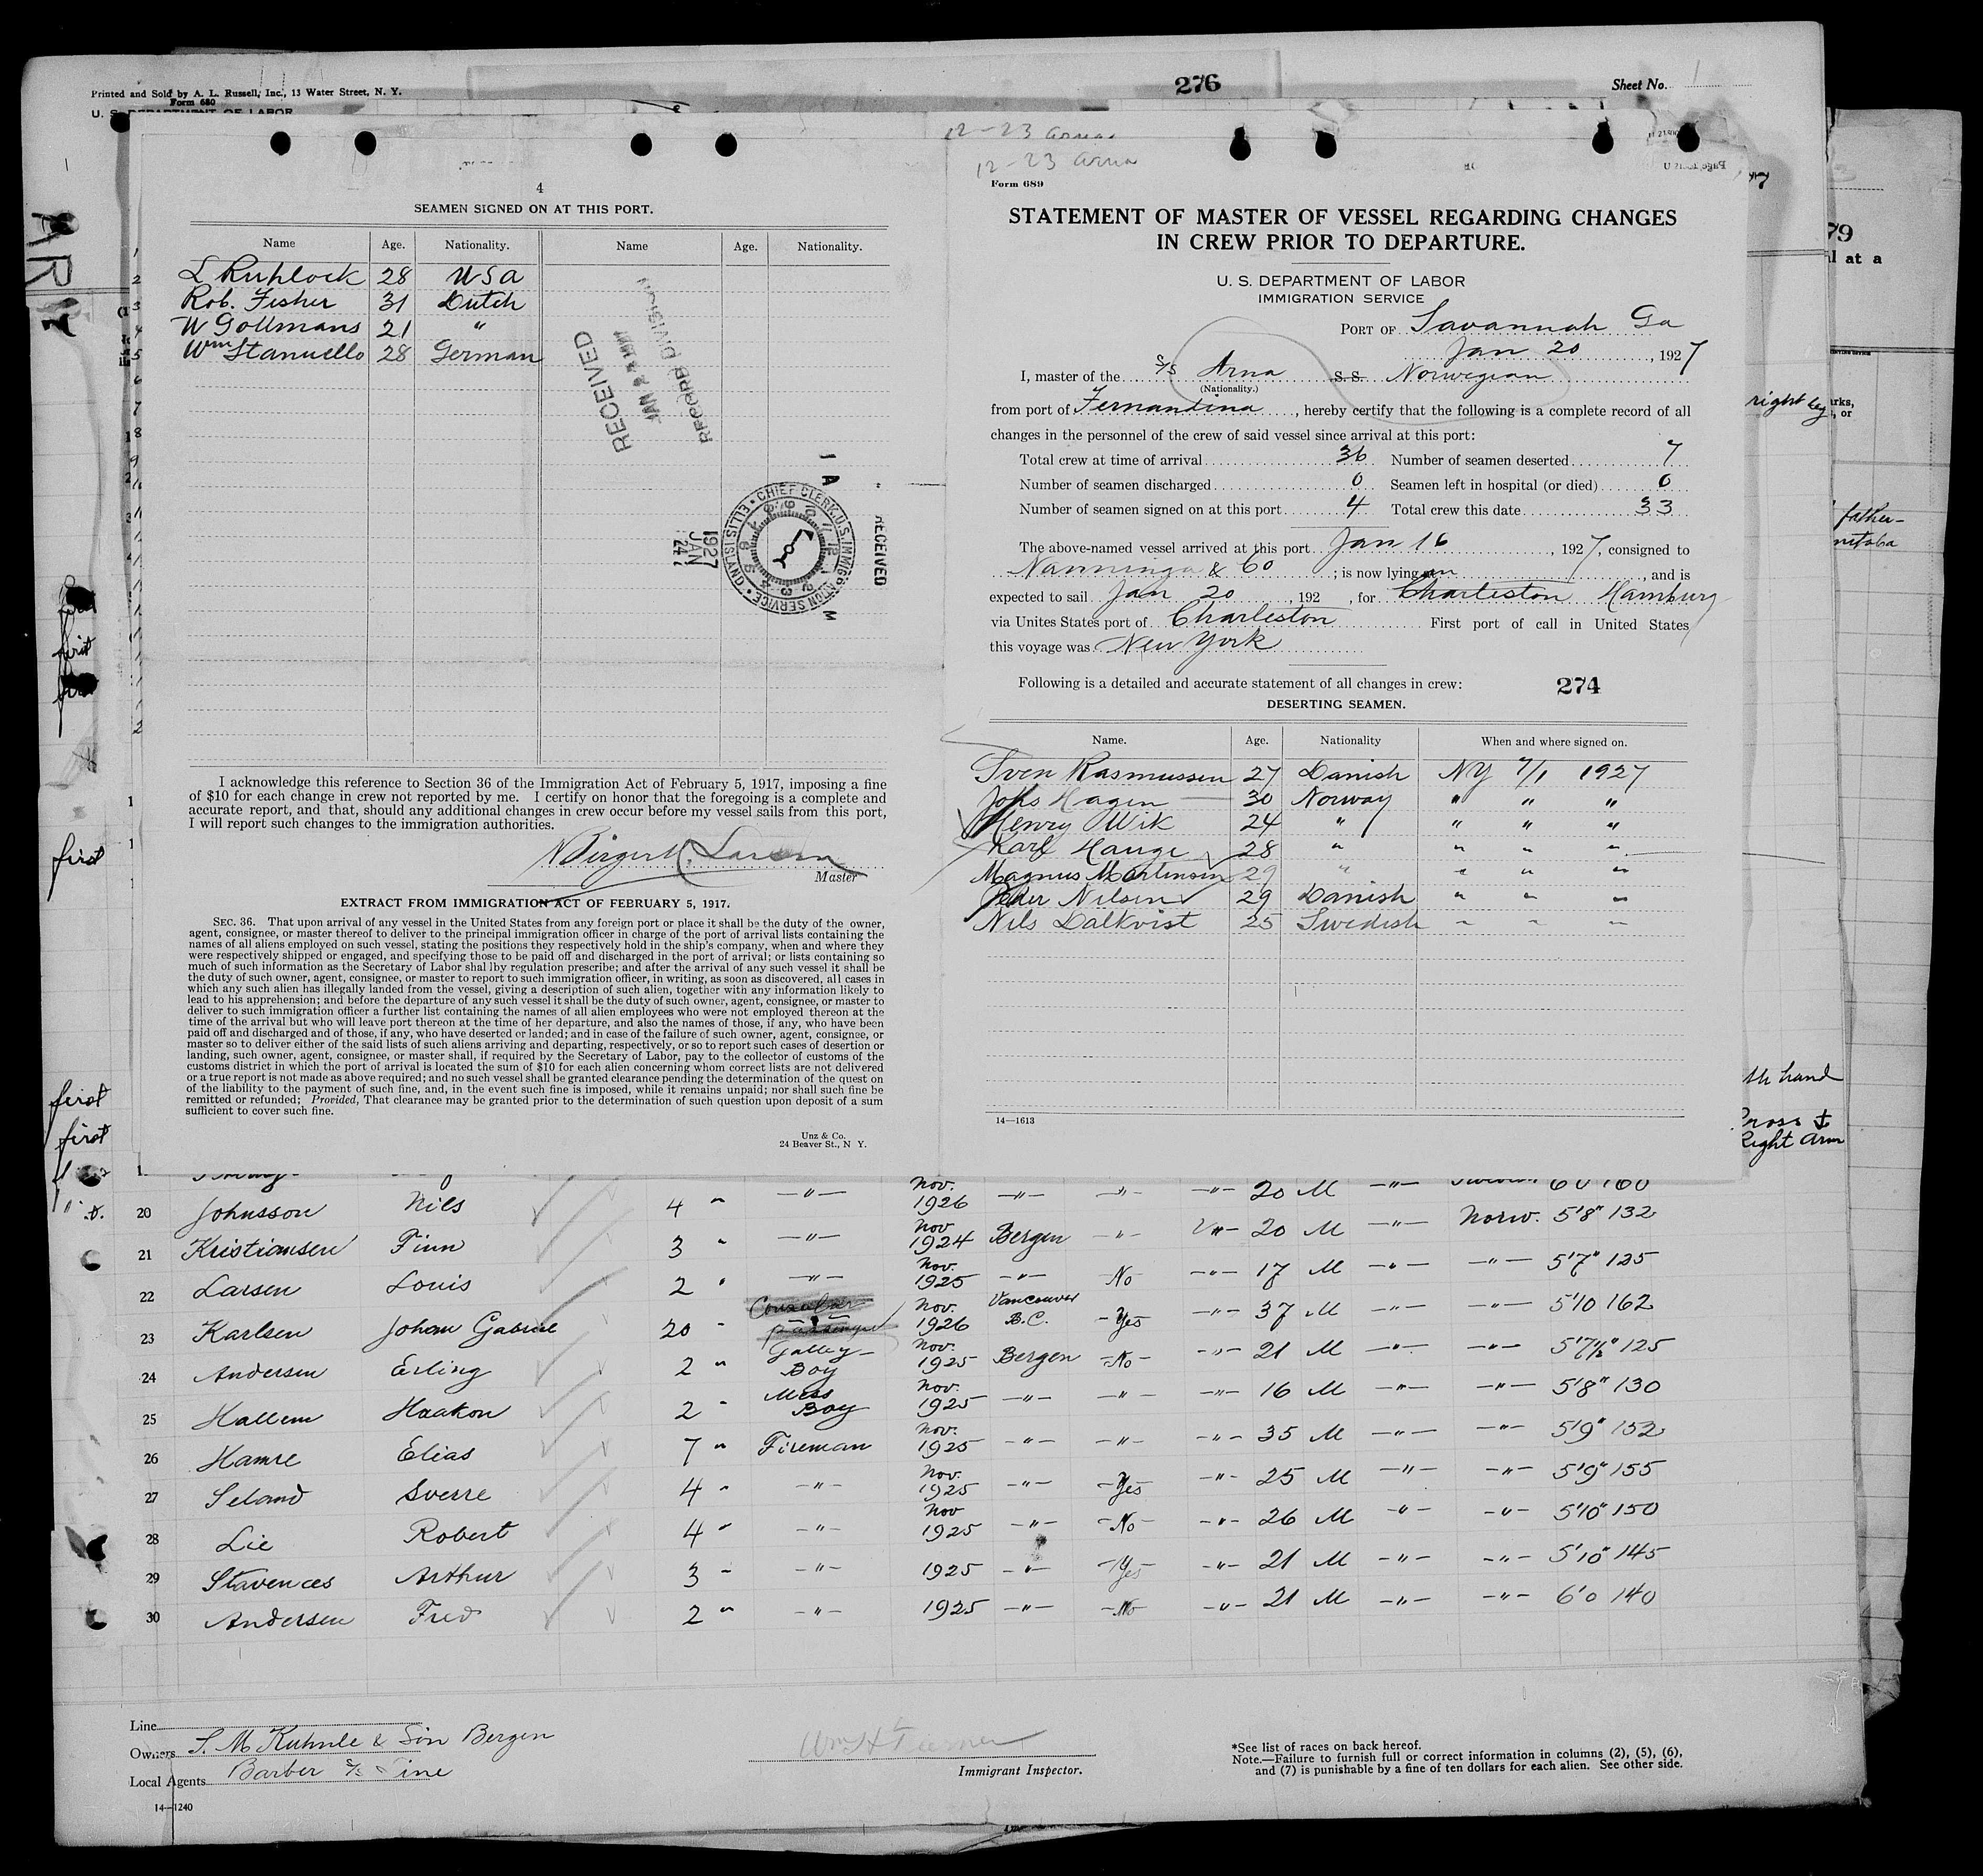 Printed and Sold by A. L. Russell, Inc., 13 Water Street, N. Y.
Form 680
U. S. DEPARTMENT OF LABOR
276
Sheet No. 1
79
4
SEAMEN SIGNED ON AT THIS PORT.
Name Age. Nationality. Name Age. Nationality.
L Ruhlock 28 USA
Rob. Fisher 31 Dutch
W Gollmans 21 "
Wm Stanuello 28 German
RECEIVED
RECORD DIVISION
CHIEF CLERK, U.S. IMMIGRATION SERVICE ELLIS ISLAND
1927
JAN
24
RECEIVED
I acknowledge this reference to Section 36 of the Immigration Act of February 5, 1917, imposing a fine
of $10 for each change in crew not reported by me. I certify on honor that the foregoing is a complete and
accurate report, and that, should any additional changes in crew occur before my vessel sails from this port,
I will report such changes to the immigration authorities.
Master
EXTRACT FROM IMMIGRATION ACT OF FEBRUARY 5, 1917.
SEC. 36. That upon arrival of any vessel in the United States from any foreign port or place it shall be the duty of the owner,
agent, consignee, or master thereof to deliver to the principal immigration officer in charge of the port of arrival lists containing the
names of all aliens employed on such vessel, stating the positions they respectively hold in the ship's company, when and where they
were respectively shipped or engaged, and specifying those to be paid off and discharged in the port of arrival; or lists containing so
much of such information as the Secretary of Labor shal lby regulation prescribe; and after the arrival of any such vessel it shall be
the duty of such owner, agent, consignee, or master to report to such immigration officer, in writing, as soon as discovered, all cases in
which any such alien has illegally landed from the vessel, giving a description of such alien, together with any information likely to
lead to his apprehension; and before the departure of any such vessel it shall be the duty of such owner, agent, consignee, or master to
deliver to such immigration officer a further list containing the names of all alien employees who were not employed thereon at the
time of the arrival but who will leave port thereon at the time of her departure, and also the names of those, if any, who have been
paid off and discharged and of those, if any, who have deserted or landed; and in case of the failure of such owner, agent, consignee, or
master so to deliver either of the said lists of such aliens arriving and departing, respectively, or so to report such cases of desertion or
landing, such owner, agent, consignee, or master shall, if required by the Secretary of Labor, pay to the collector of customs of the
customs district in which the port of arrival is located the sum of $10 for each alien concerning whom correct lists are not delivered
or a true report is not made as above required; and no such vessel shall be granted clearance pending the determination of the quest on
of the liability to the payment of such fine, and, in the event such fine is imposed, while it remains unpaid; nor shall such fine be
remitted or refunded; Provided, That clearance may be granted prior to the determination of such question upon deposit of a sum
sufficient to cover such fine.
Unz & Co.
24 Beaver St., N Y.
12-23 Arna
12-23 Arna
Form 689
STATEMENT OF MASTER OF VESSEL REGARDING CHANGES
IN CREW PRIOR TO DEPARTURE.
U. S. DEPARTMENT OF LABOR
IMMIGRATION SERVICE
PORT OF Savannah Ga
Jan 20, 1927
I, master of the S/S Arna S.S. Norwegian
(Nationality.)
from port of Fernandina, hereby certify that the following is a complete record of all
changes in the personnel of the crew of said vessel since arrival at this port:
Total crew at time of arrival 36 Number of seamen deserted 7
Number of seamen discharged 0 Seamen left in hospital (or died) 0
Number of seamen signed on at this port 4 Total crew this date 33
The above-named vessel arrived at this port Jan 16, 1927, consigned to
Nanninga & Co; is now lying, and is
expected to sail Jan 20, 192, for Charleston Hamburg
via Unites States port of Charleston First port of call in United States
this voyage was New York
Following is a detailed and accurate statement of all changes in crew: 274
DESERTING SEAMEN.
Name. Age. Nationality When and where signed on.
Sven Rasmussen 27 Danish NY 7/1 1927
Johs Hagen 30 Norway " " "
Henry Wik 24 " " " "
Karl Hauge 28 " " " "
Magnus Martinsen 29 " " " "
Peder Nilsen 29 Danish " " "
Nils Dalkvist 25 Swedish " " "
14—1613
right leg
father-
nitoba
hand
Cross
Right arm
first
first
first
first
20 Johnsson Nils 4 " —"— Nov. 1926 —"— —"— —"— 20 M —"—
21 Kristiansen Finn 3 " —"— Nov 1924 Bergen —"— —"— 20 M —"— Norw. 5'8" 132
22 Larsen Louis 2 " —"— Nov. 1925 —"— No —"— 17 M —"— —"— 5'7" 125
23 Karlsen Johan Gabriel 20 " Nov. 1926 Vancouver B.C. Yes —"— 37 M —"— —"— 5'10 162
24 Andersen Erling 2 " Galley Boy Nov. 1925 Bergen No —"— 21 M —"— —"— 5'7½" 125
25 Hallem Haakon 2 " Mess Boy Nov. 1925 —"— —"— —"— 16 M —"— —"— 5'8" 130
26 Hamre Elias 7 " Fireman Nov. 1925 —"— —"— —"— 35 M —"— —"— 5'9" 152
27 Seland Sverre 4 " —"— Nov. 1925 —"— Yes —"— 25 M —"— —"— 5'9" 155
28 Lie Robert 4 " —"— Nov 1925 —"— No —"— 26 M —"— —"— 5'10" 150
29 Stavenes Arthur 3 " —"— 1925 —"— Yes —"— 21 M —"— —"— 5'10" 145
30 Andersen Fred 2 " —"— 1925 —"— No —"— 21 M —"— —"— 6'0 140
Line
Owners S. M. Kuhnle & Son Bergen
Local Agents Barber S/S Line
Immigrant Inspector.
*See list of races on back hereof.
Note.—Failure to furnish full or correct information in columns (2), (5), (6),
and (7) is punishable by a fine of ten dollars for each alien. See other side.
14—1240